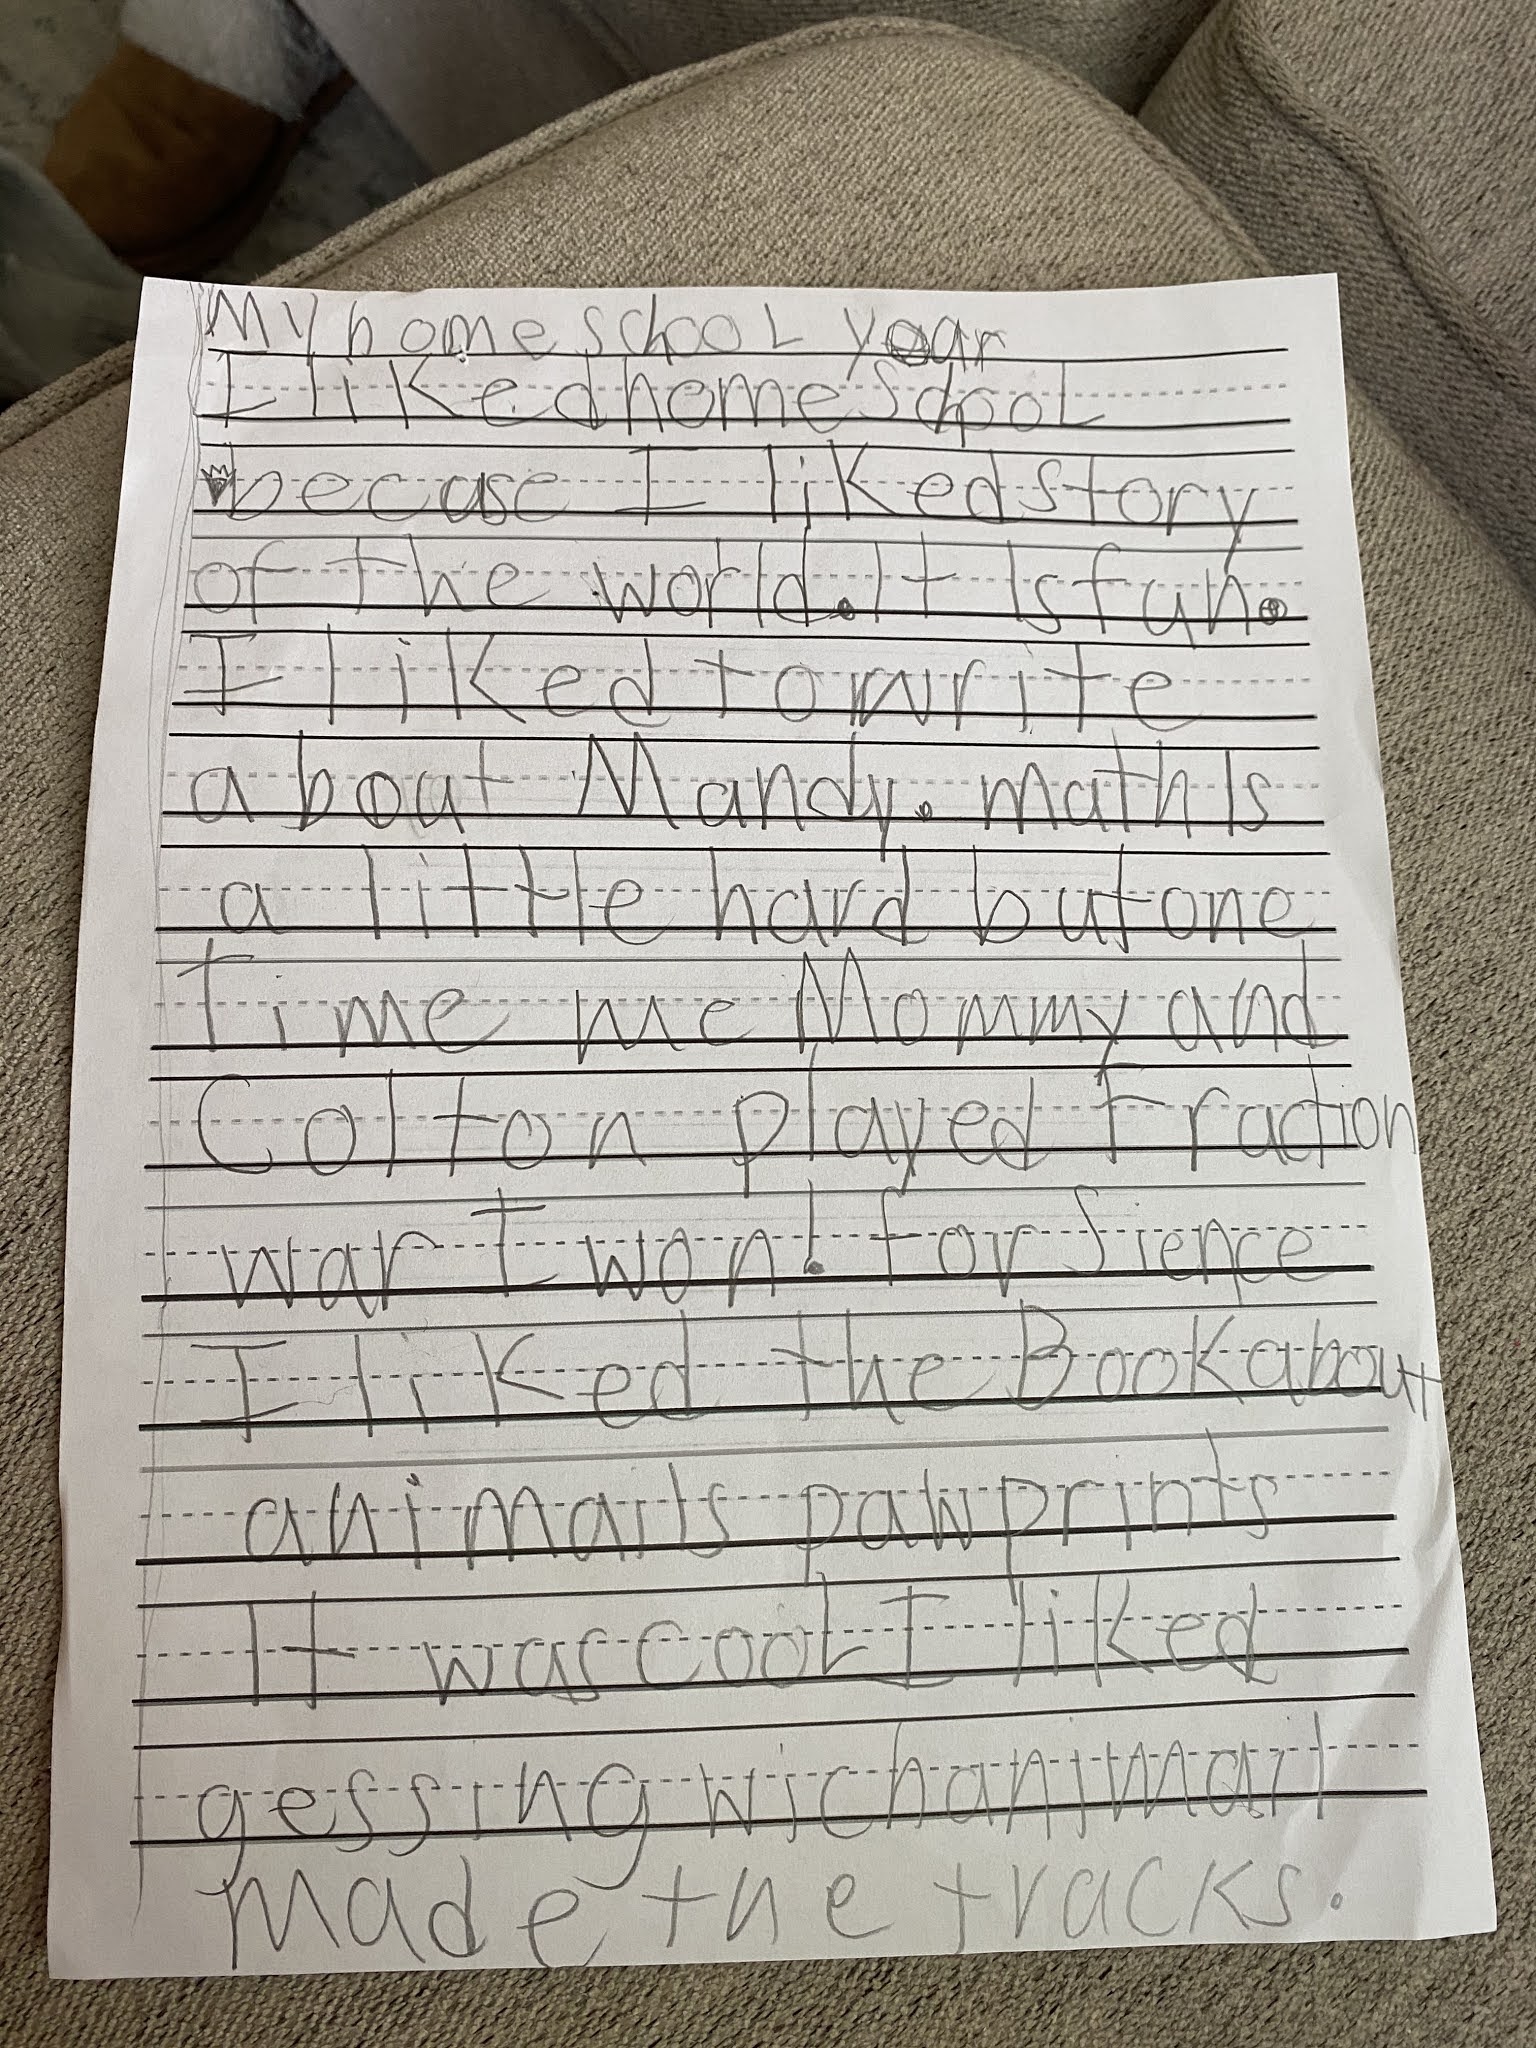 My homeschool year
I liked homeschool
becase I liked story
of the world. It Is fun.
I liked to write
about Mandy. math Is
a little hard but one
time me Mommy and
Colton played fraction
war I won! for Sience
I liked the Book about
animails paw prints
It was cool I liked
gessing wich animail
made the tracks.